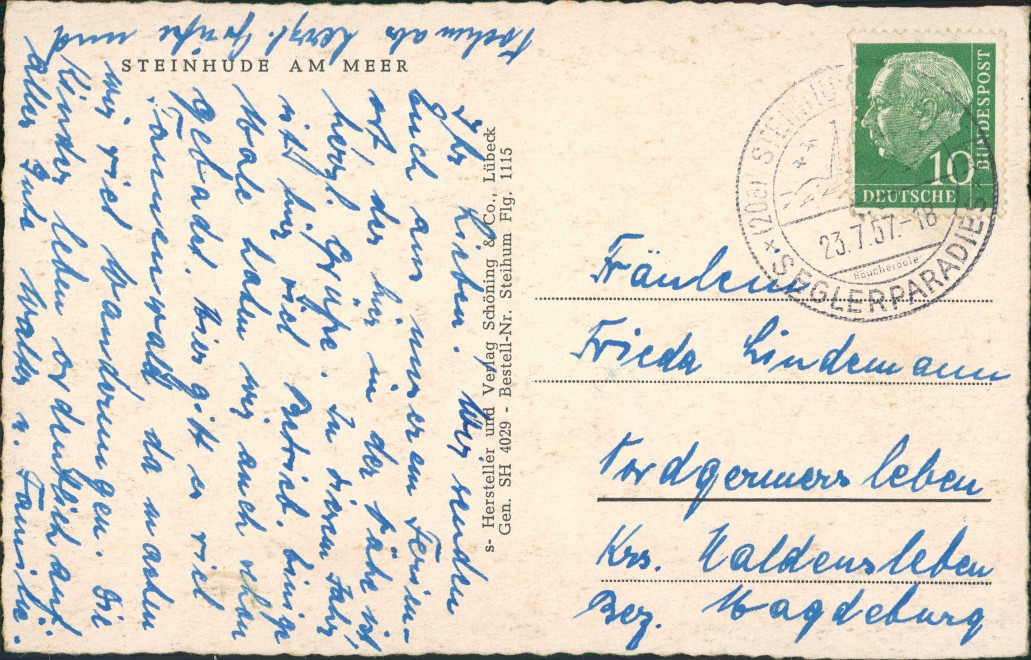 STEINHUDE AM MEER
Ihr Lieben! Wir senden
Euch aus unserem Ferien-
ort der hier in der Nähe ist
herzl. Grüße. In diesem Jahr
ist hier viel Betrieb. Einige
Male haben wir auch schon
gebadet. hier gibt es viel
Tannenwald da machen
wir viel Wanderungen. Die
Kinder leben ordentlich auf.
Alles Gute Walter u. Familie.
Nochmals herzl. Grüße und
s- Hersteller und Verlag Schöning & Co., Lübeck
Gen. SH 4029 - Bestell-Nr. Steihum Flg. 1115
10
DEUTSCHE
BUNDESPOST
(20a) STEINHU
23.7.57.-18
Räucheraale
* SEGLERPARADIES
Fräulein
Frieda Lindemann
Nordgermersleben
Krs. Haldensleben
Bez. Magdeburg